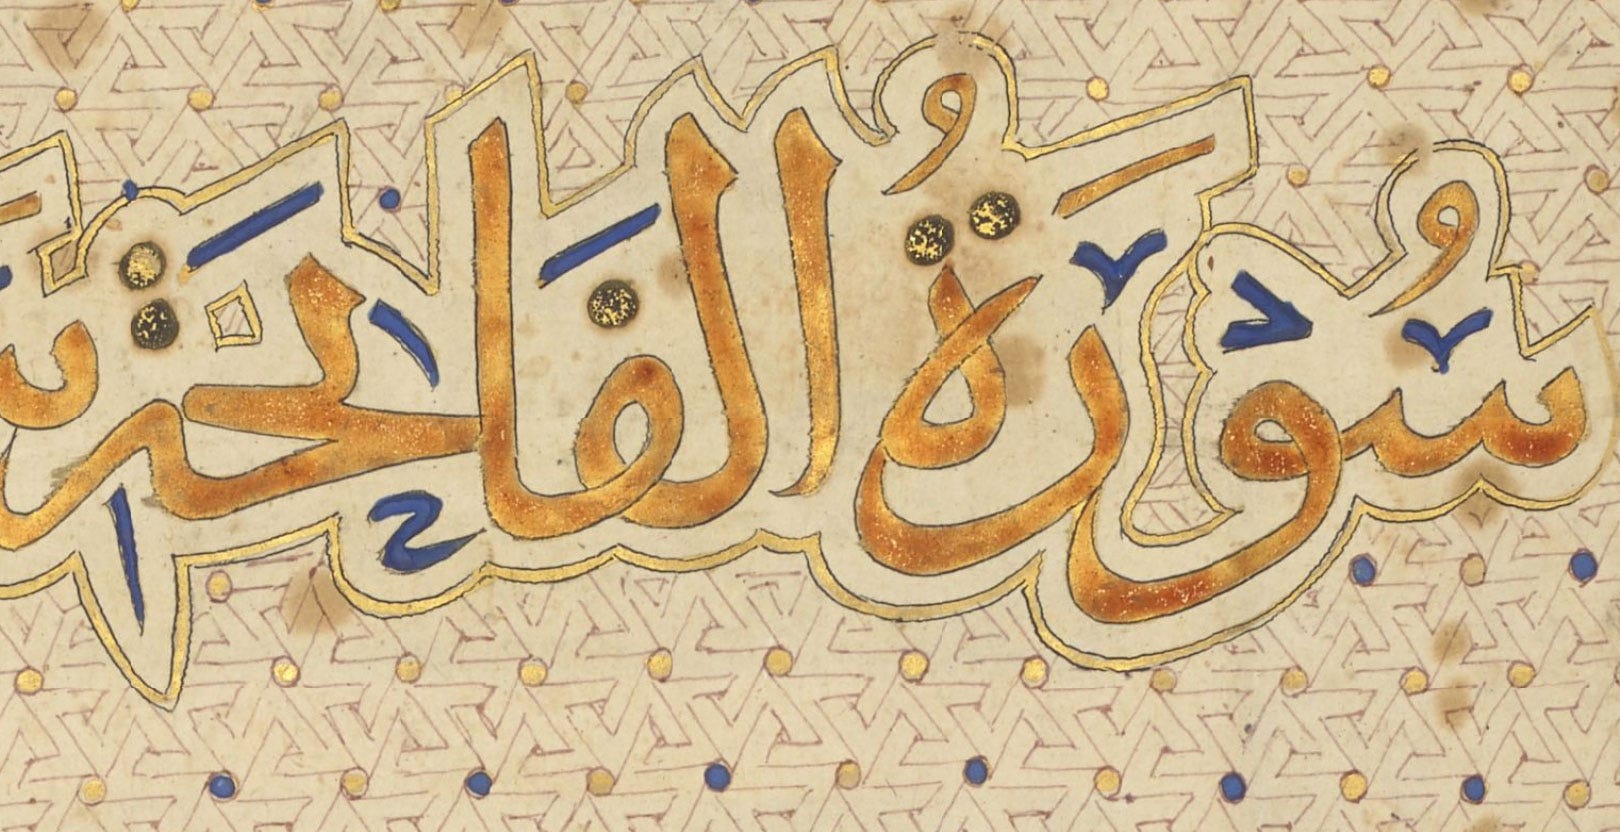 سُورَةُ الفَاتِحَةِ